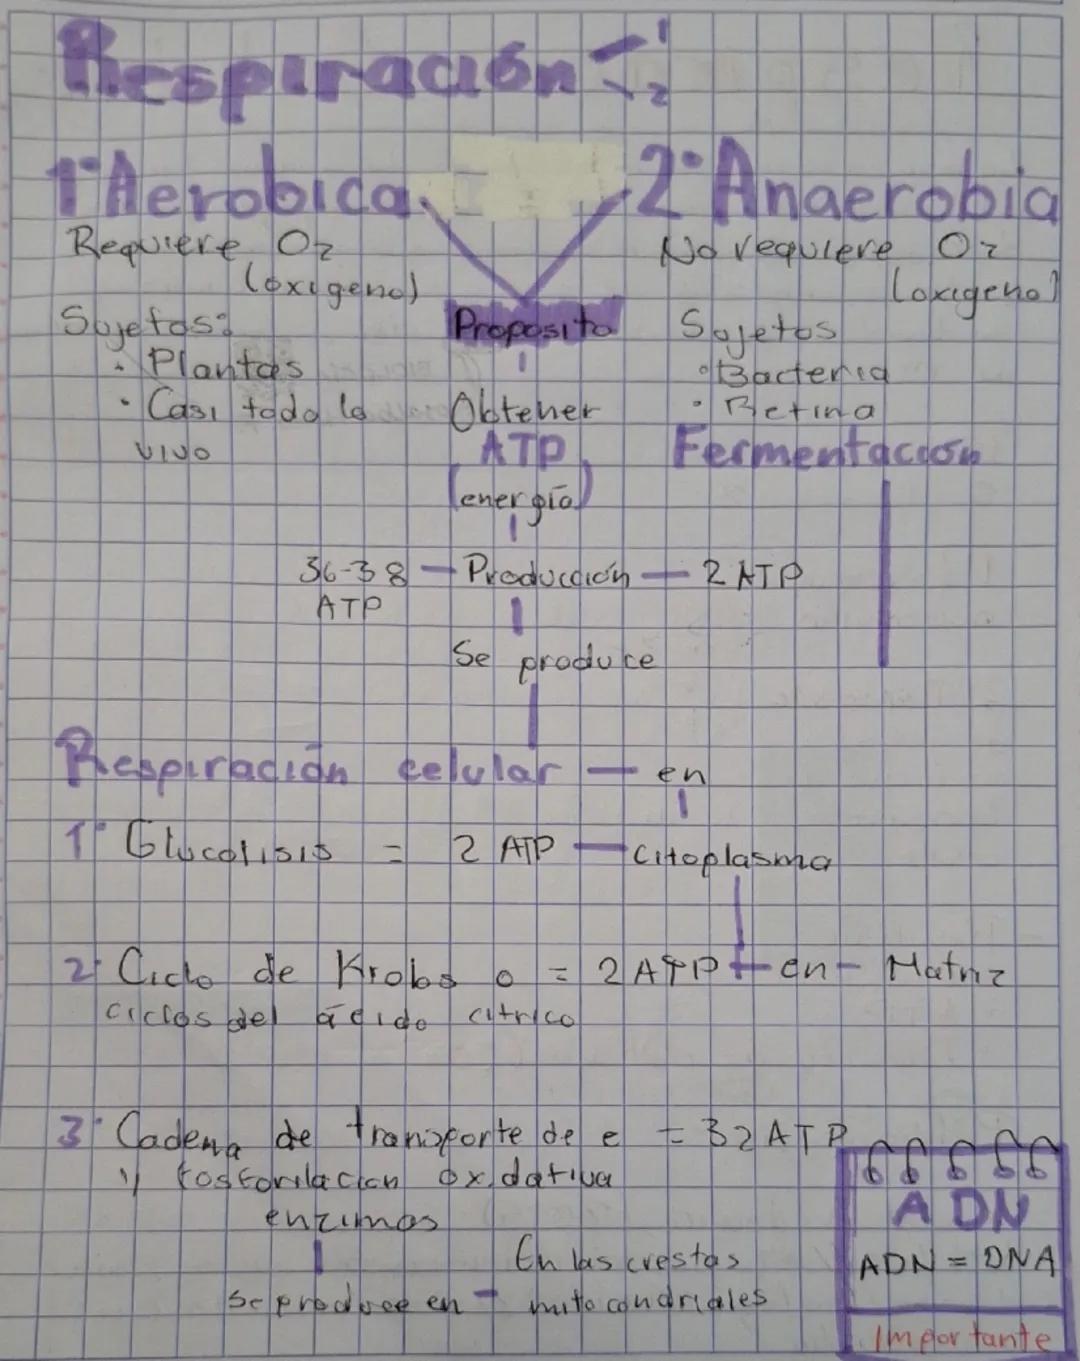 Respiración 1
2
1° Aerobica
2° Anaerobia
Requiere O2
(oxigeno)
Sujetos:
• Plantas
• Casi todo lo
vivo
Proposito
Obtener
ATP
(energía)
No requiere O2
(oxigeno)
Sujetos
• Bacteria
• Retina
Fermentación
36-38 — Producción — 2 ATP
ATP
Se produce
Respiración celular — en
1° Glucolisis = 2 ATP — Citoplasma
2° Ciclo de Krebs o = 2 ATP — en — Matriz
ciclos del ácido citrico
3° Cadena de transporte de e = 32 ATP
y fosforilacion oxidativa
enzimas
se produce en — En las crestas
mitocondriales
ADN
ADN = DNA
Importante